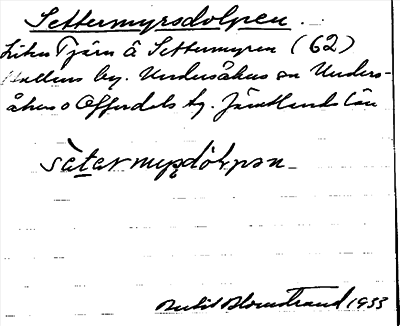 Settermyrsdolpen.
Liten Tjärn å Settermyren (62)
Mellens by. Undersåkers sn Unders-
åkers o Offerdals tg. Jämtlands län
sètarmyʂdòl̥pən
Bertil Blomstrand 1933